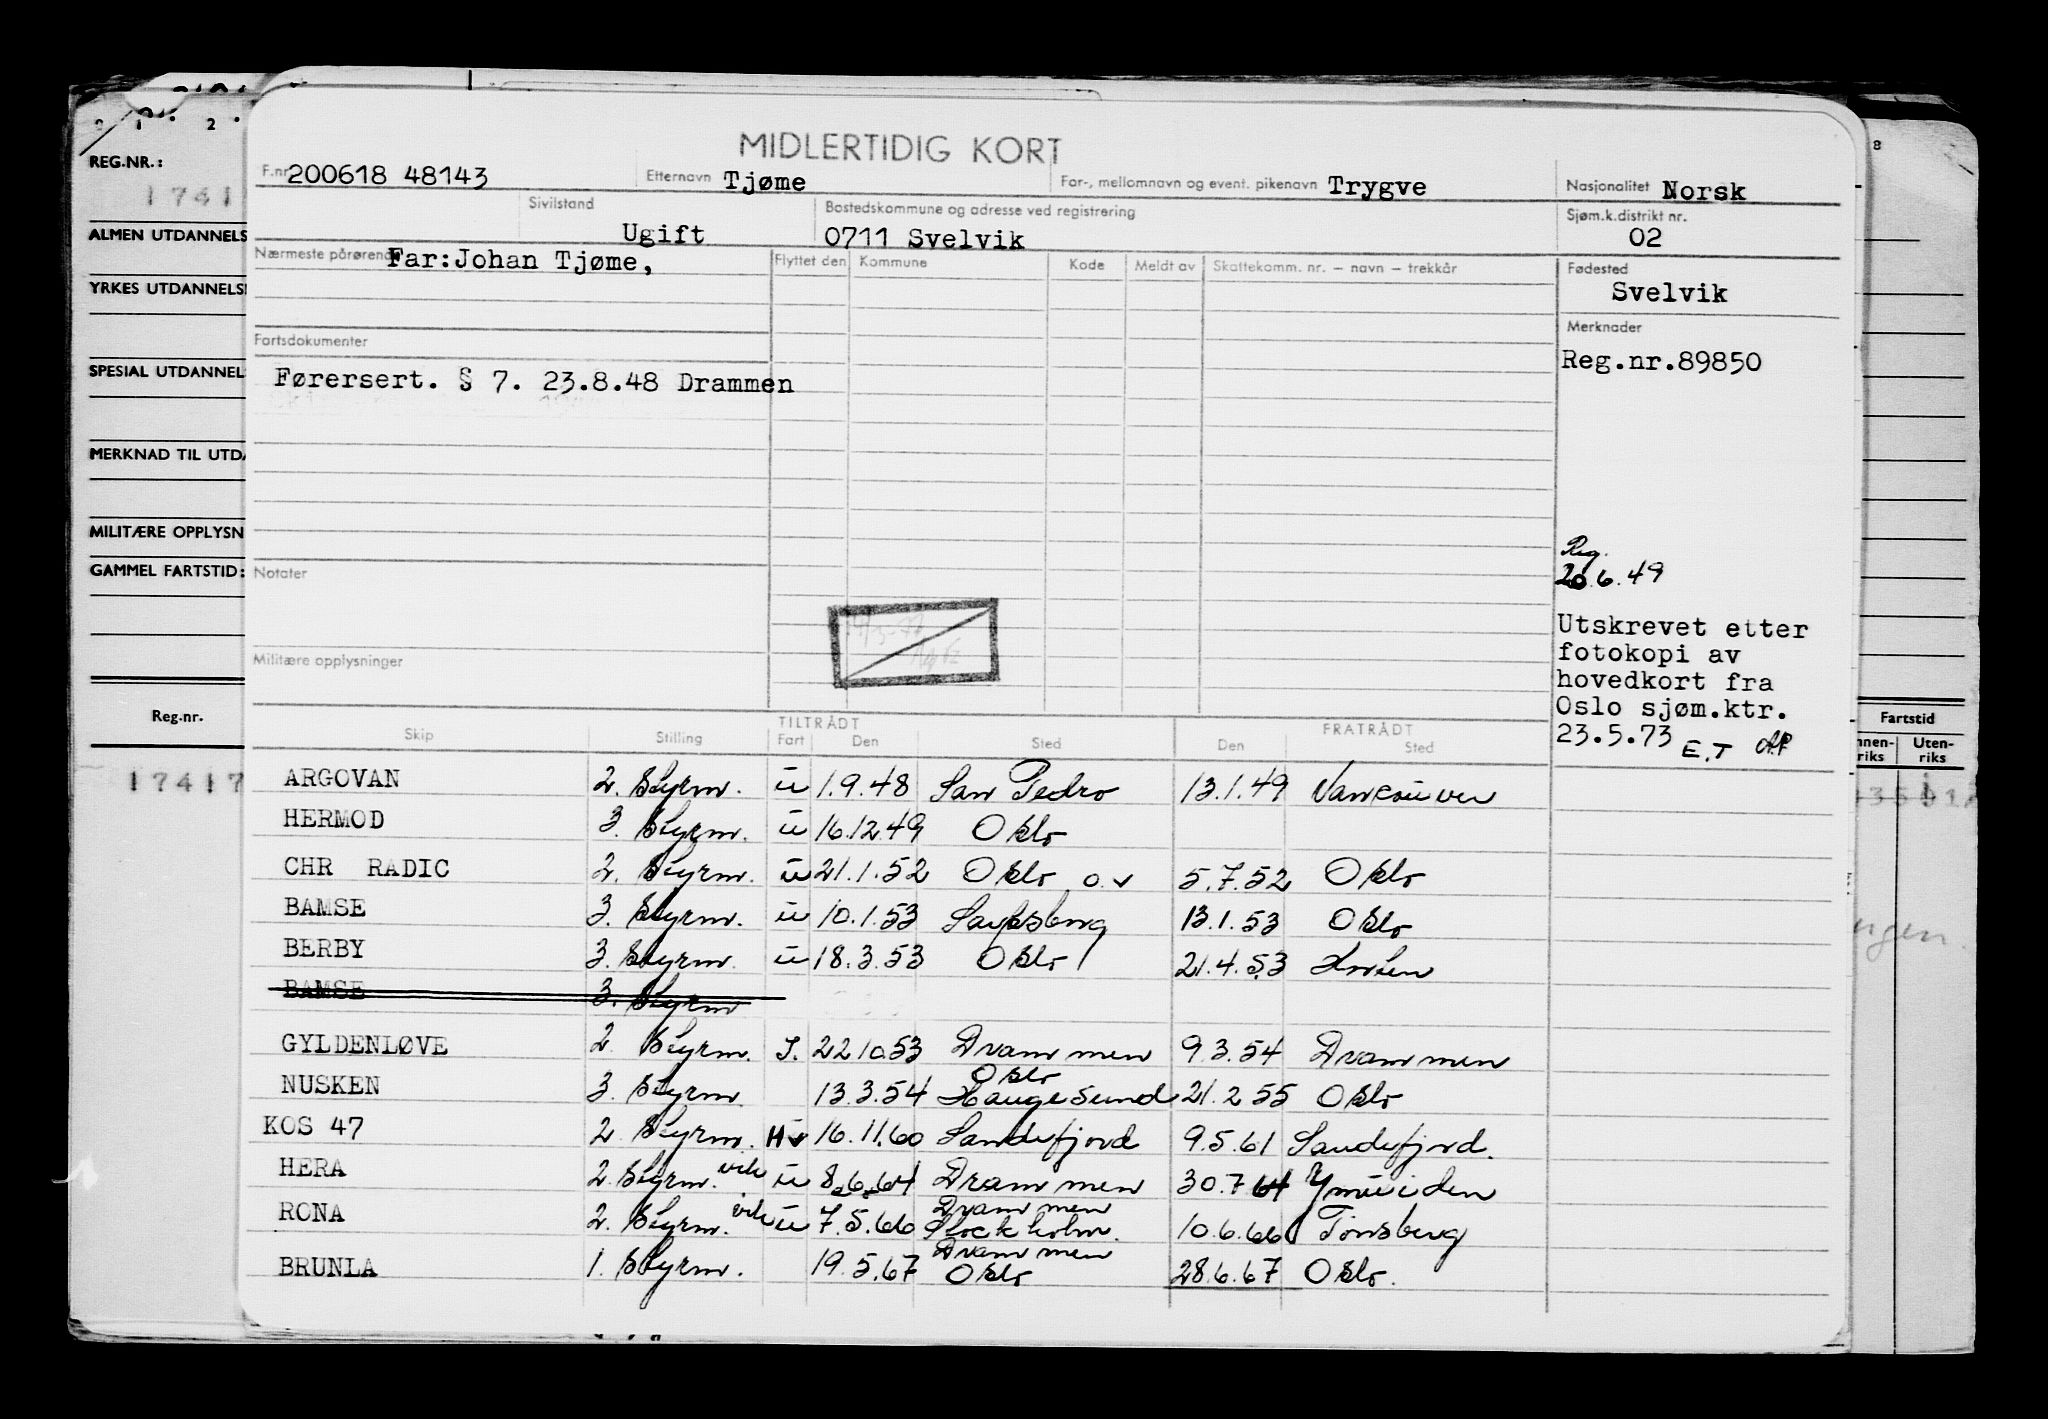 MIDLERTIDIG KORT
F.nr. 200618 48143 Etternavn Tjøme For-, mellomnavn og event. pikenavn Trygve Nasjonalitet Norsk
Sivilstand Ugift Bostedskommune og adresse ved registrering 0711 Svelvik Sjøm.k.distrikt nr. 02
Nærmeste pårørende Far:Johan Tjøme, Flyttet den Kommune Kode Meldt av Skattekomm. nr. – navn – trekkår Fødested
Svelvik
Merknader
Fartsdokumenter
Reg.nr.89850
Førersert. § 7. 23.8.48 Drammen
Reg.
20.6.49
Notater
Militære opplysninger
Utskrevet etter
fotokopi av
hovedkort fra
Oslo sjøm.ktr.
23.5.73 E.T
TILTRÅDT FRATRÅDT
Skip Stilling Fart Den Sted Den Sted
ARGOVAN 2. Styrm. u 1.9.48 San Pedro 13.1.49 Vancouver
HERMOD 3. Styrm. u 16.12.49 Oslo
CHR RADIC 2. Styrm. u 21.1.52 Oslo o.v 5.7.52 Oslo
BAMSE 3. Styrm. u 10.1.53 Sarpsborg 13.1.53 Oslo
BERBY 3. Styrm. u 18.3.53 Oslo 21.4.53
BAMSE 3. Styrm
GYLDENLØVE 2 Styrm. I. 22.10.53 Drammen 9.3.54 Drammen
NUSKEN 3. Styrm. 13.3.54 Oslo Haugesund 21.2.55 Oslo
KOS 47 2 Styrm. Hv 16.11.60 Sandefjord 9.5.61 Sandefjord.
HERA 2. Styrm. vik u 8.6.64 Drammen 30.7.64 Ymuiden
RONA 2. Styrm. vik u 7.5.66 Drammen Stockholm. 10.6.66 Tønsberg
BRUNLA 1. Styrm. 19.5.67 Drammen Oslo 28.6.67 Oslo.
REG.NR.:
1741
ALMEN UTDANNELS
YRKES UTDANNELS
SPESIAL UTDANNEL
MERKNAD TIL UTD
MILITÆRE OPPLYSN
GAMMEL FARTSTID:
Reg.nr.
17417
8
Fartstid
nnen-riks Uten-riks
ngen.